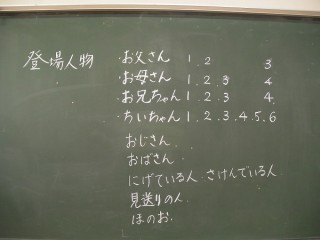 登場人物 ・お父さん 1.2 3
・お母さん 1.2.3 4
・お兄ちゃん 1.2.3 4.
・ちいちゃん 1.2.3.4.5.6
おじさん.
おばさん.
にげている人 さけんでいる人
見送りの人.
ほのお.